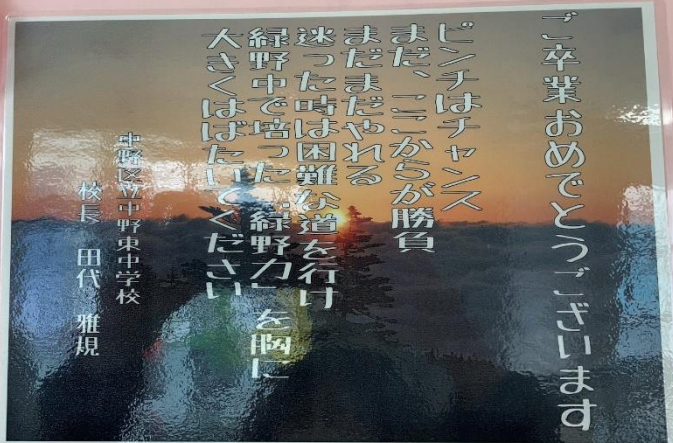 ご卒業おめでとうございます
ピンチはチャンス
まだ、ここからが勝負
まだまだやれる
迷った時は困難な道を行け
緑野中で培った「緑野力」を胸に
大きくはばたいてください
中野区立中野東中学校
校長 田代 雅規